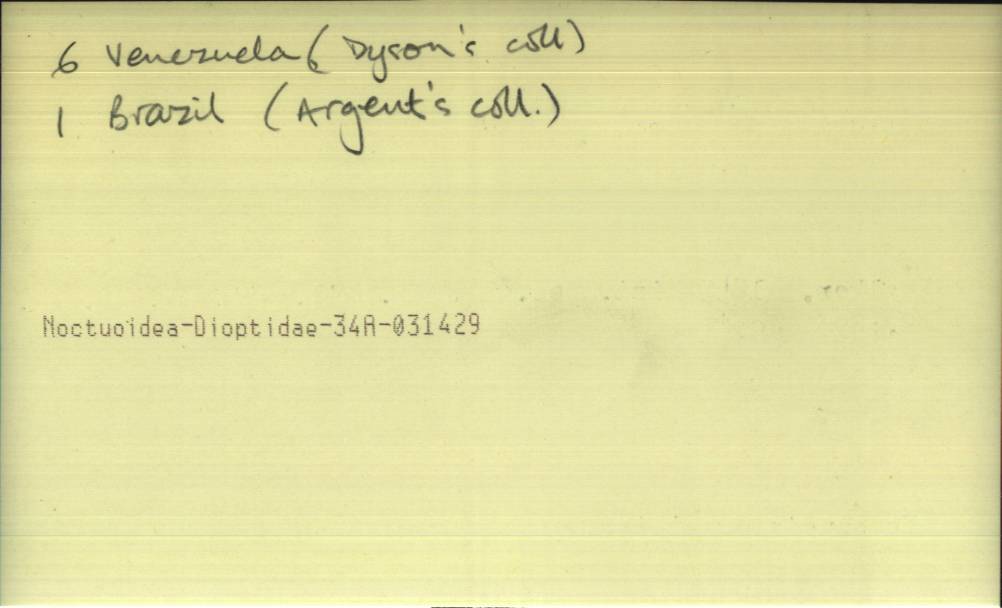 6 Venezuela (Dyson's coll)
1 Brazil (Argent's coll.)
Noctuoidea-Dioptidae-34A-031429